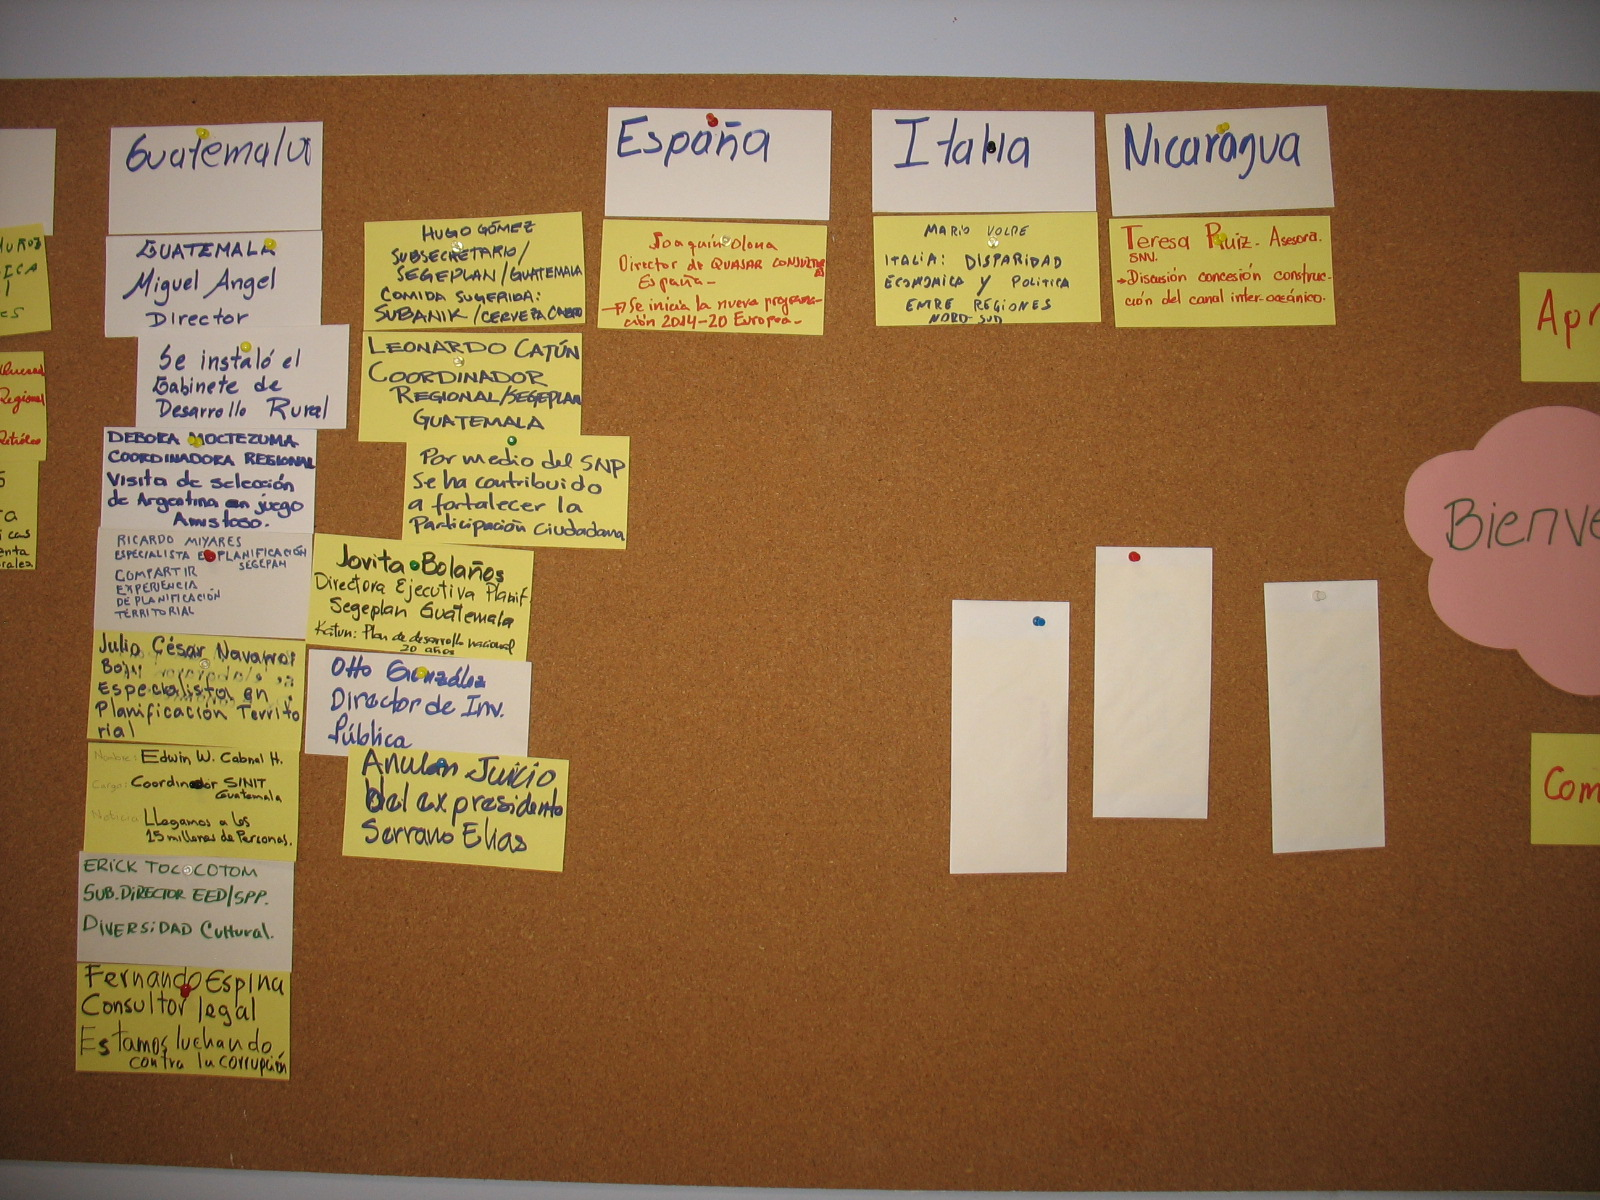 Guatemala
GUATEMALA
Miguel Angel
Director
Se instaló el
Gabinete de
Desarrollo Rural
DEBORA MOCTEZUMA
COORDINADORA REGIONAL
Visita de selección
de Argentina en juego
Amistoso.
RICARDO MIYARES
ESPECIALISTA EN PLANIFICACIÓN
SEGEPAN
COMPARTIR
EXPERIENCIA
DE PLANIFICACIÓN
TERRITORIAL
Julio César Navarro
Especialista en
Planificación Territo
rial
Nombre: Edwin W. Cabnal H.
Cargo: Coordinador SINIT
Guatemala
Noticia Llegamos a los
15 millones de Personas.
ERICK TOCOCOTOM
SUB.DIRECTOR EED/SPP.
DIVERSIDAD Cultural.
Fernando Espina
Consultor legal
Estamos luchando
contra la corrupción
HUGO GÓMEZ
SUBSECRETARIO/
SEGEPLAN/GUATEMALA
COMIDA SUGERIDA:
SUBANIK/CERVEZA CABRO
LEONARDO CATÚN
COORDINADOR
REGIONAL/SEGEPLAN
GUATEMALA
Por medio del SNP
Se ha contribuido
a fortalecer la
Participación Ciudadana
Jovita Bolaños
Directora Ejecutiva Planif.
Segeplan Guatemala
Katun: Plan de desarrollo nacional
20 años
Otto González
Director de Inv.
Pública
Anulan Juicio
del expresidente
Serrano Elias
España
Joaquín Olona
Director de QUASAR CONSULTORES
España-
→ Se inicia la nueva programa-
ción 2014-20 Europea-
Italia
MARIO VOLPE
ITALIA: DISPARIDAD
ECONOMICA Y POLITICA
ENTRE REGIONES
NORD-SUD
Nicaragua
Teresa Ruiz. Asesora.
SNV.
→ Discusión concesión construc-
ción del canal inter-oceánico.
Apr
Bienve
Com